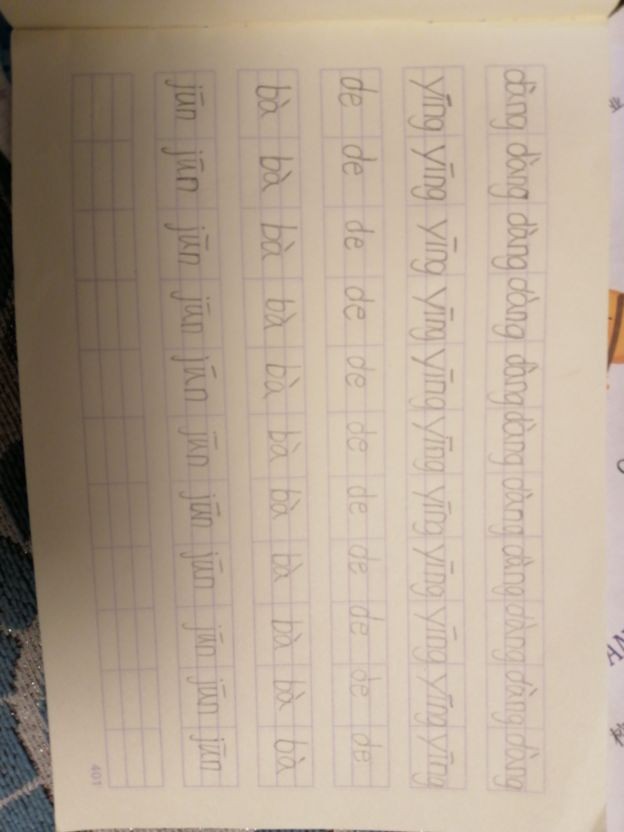 dàng dàng dàng dàng dàng dàng dàng dàng dàng dàng dàng
yīng yīng yīng yīng yīng yīng yīng yīng yīng yīng yīng
de de de de de de de de de de de
bà bà bà bà bà bà bà bà bà bà bà
jūn jūn jūn jūn jūn jūn jūn jūn jūn jūn jūn
401